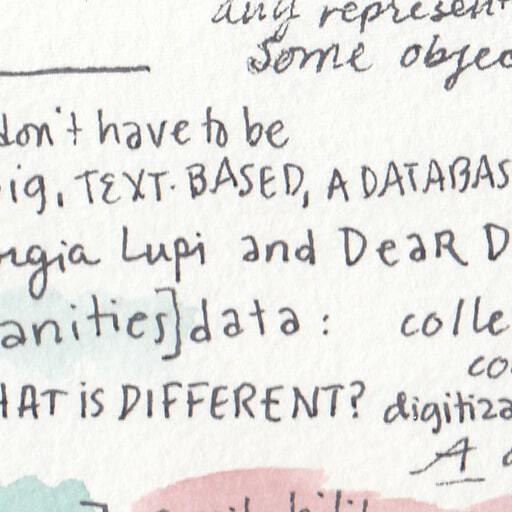 any represent
Some objec
don't have to be
ig, TEXT-BASED, A DATABAS
rgia Lupi and DeaR D
anities] data: colle
co
HAT iS DIFFERENT? digitiza
A